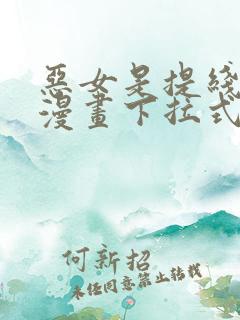 惡女是提綫
漫畫下拉式
何新招
未经同意禁止转载